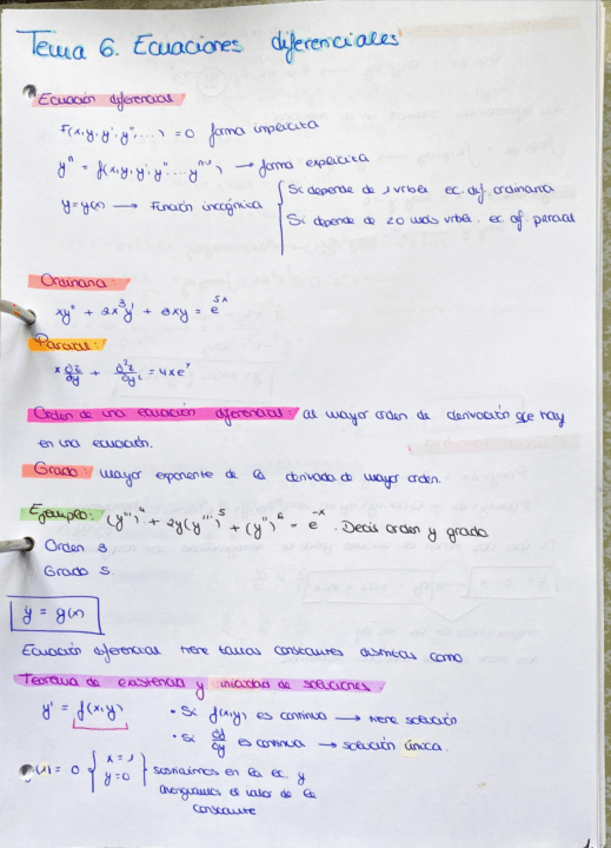 Tema 6. Ecuaciones diferenciales
Ecuación diferencial
F(x, y, y', y'', ...) = 0 forma implícita
yⁿ = f(x, y, y', y'' ... yⁿ⁻¹) → forma explícita
y = y(x) → Función incógnita { Si depende de 1 vrble. ec. dif. ordinaria
Si depende de 2 o más vrble. ec. dif. parcial
Ordinaria:
xy'' + 2x³y' + 8xy = e⁵ˣ
Parcial:
x ∂z/∂y + ∂²z/∂y² = 4xeʸ
Orden de una ecuación diferencial: al mayor orden de derivación que hay
en una ecuación.
Grado: mayor exponente de la derivada de mayor orden.
Ejemplo: (y''')⁴ + 2y(y''')⁵ + (y'')⁶ = e⁻ˣ. Decís orden y grado
Orden 3
Grado 5.
y = g(x)
Ecuación diferencial tiene tantas constantes distintas como
Teorema de existencia y unicidad de soluciones.
y' = f(x, y) • Si f(x,y) es continua → tiene solución
• Si ∂f/∂y es continua → solución única.
y(1) = 0 { x = 1 y = 0 } sustituimos en la ec. y
averiguamos el valor de la
constante